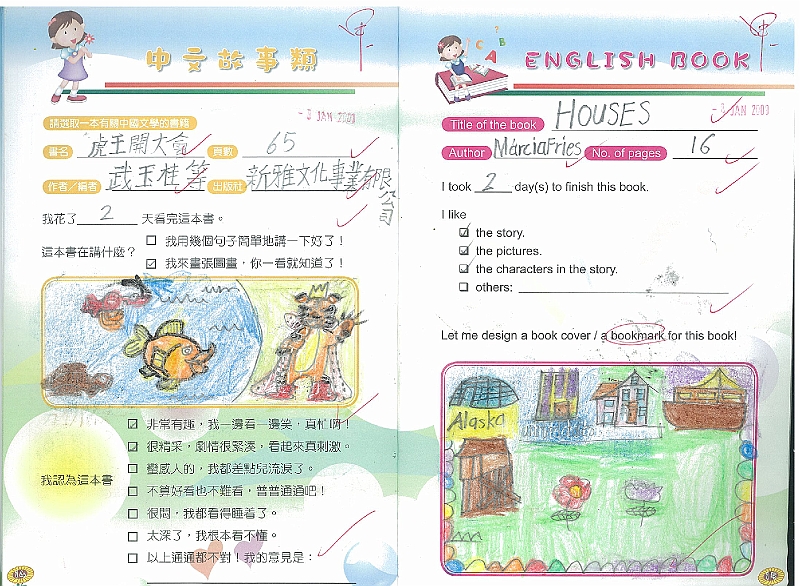 中文故事類
-3 JAN 2003
請選取一本有關中國文學的書籍
書名 虎王開大會 頁數 65
作者／編者 武玉桂 等 出版社 新雅文化事業有限公司
我花了 2 天看完這本書。
這本書在講什麼？
我用幾個句子簡單地講一下好了！
我來畫張圖畫，你一看就知道了！
我認為這本書
非常有趣，我一邊看一邊笑，真忙啊！
很精采，劇情很緊湊，看起來真刺激。
蠻感人的，我都差點兒流淚了。
不算好看也不難看，普普通通吧！
很悶，我都看得睡着了。
太深了，我根本看不懂。
以上通通都不對！我的意見是：
ENGLISH BOOK
-3 JAN 2003
Title of the book HOUSES
Author MárciaFries No. of pages 16
I took 2 day(s) to finish this book.
I like
the story.
the pictures.
the characters in the story.
others:
Let me design a book cover / a bookmark for this book!
Alaska